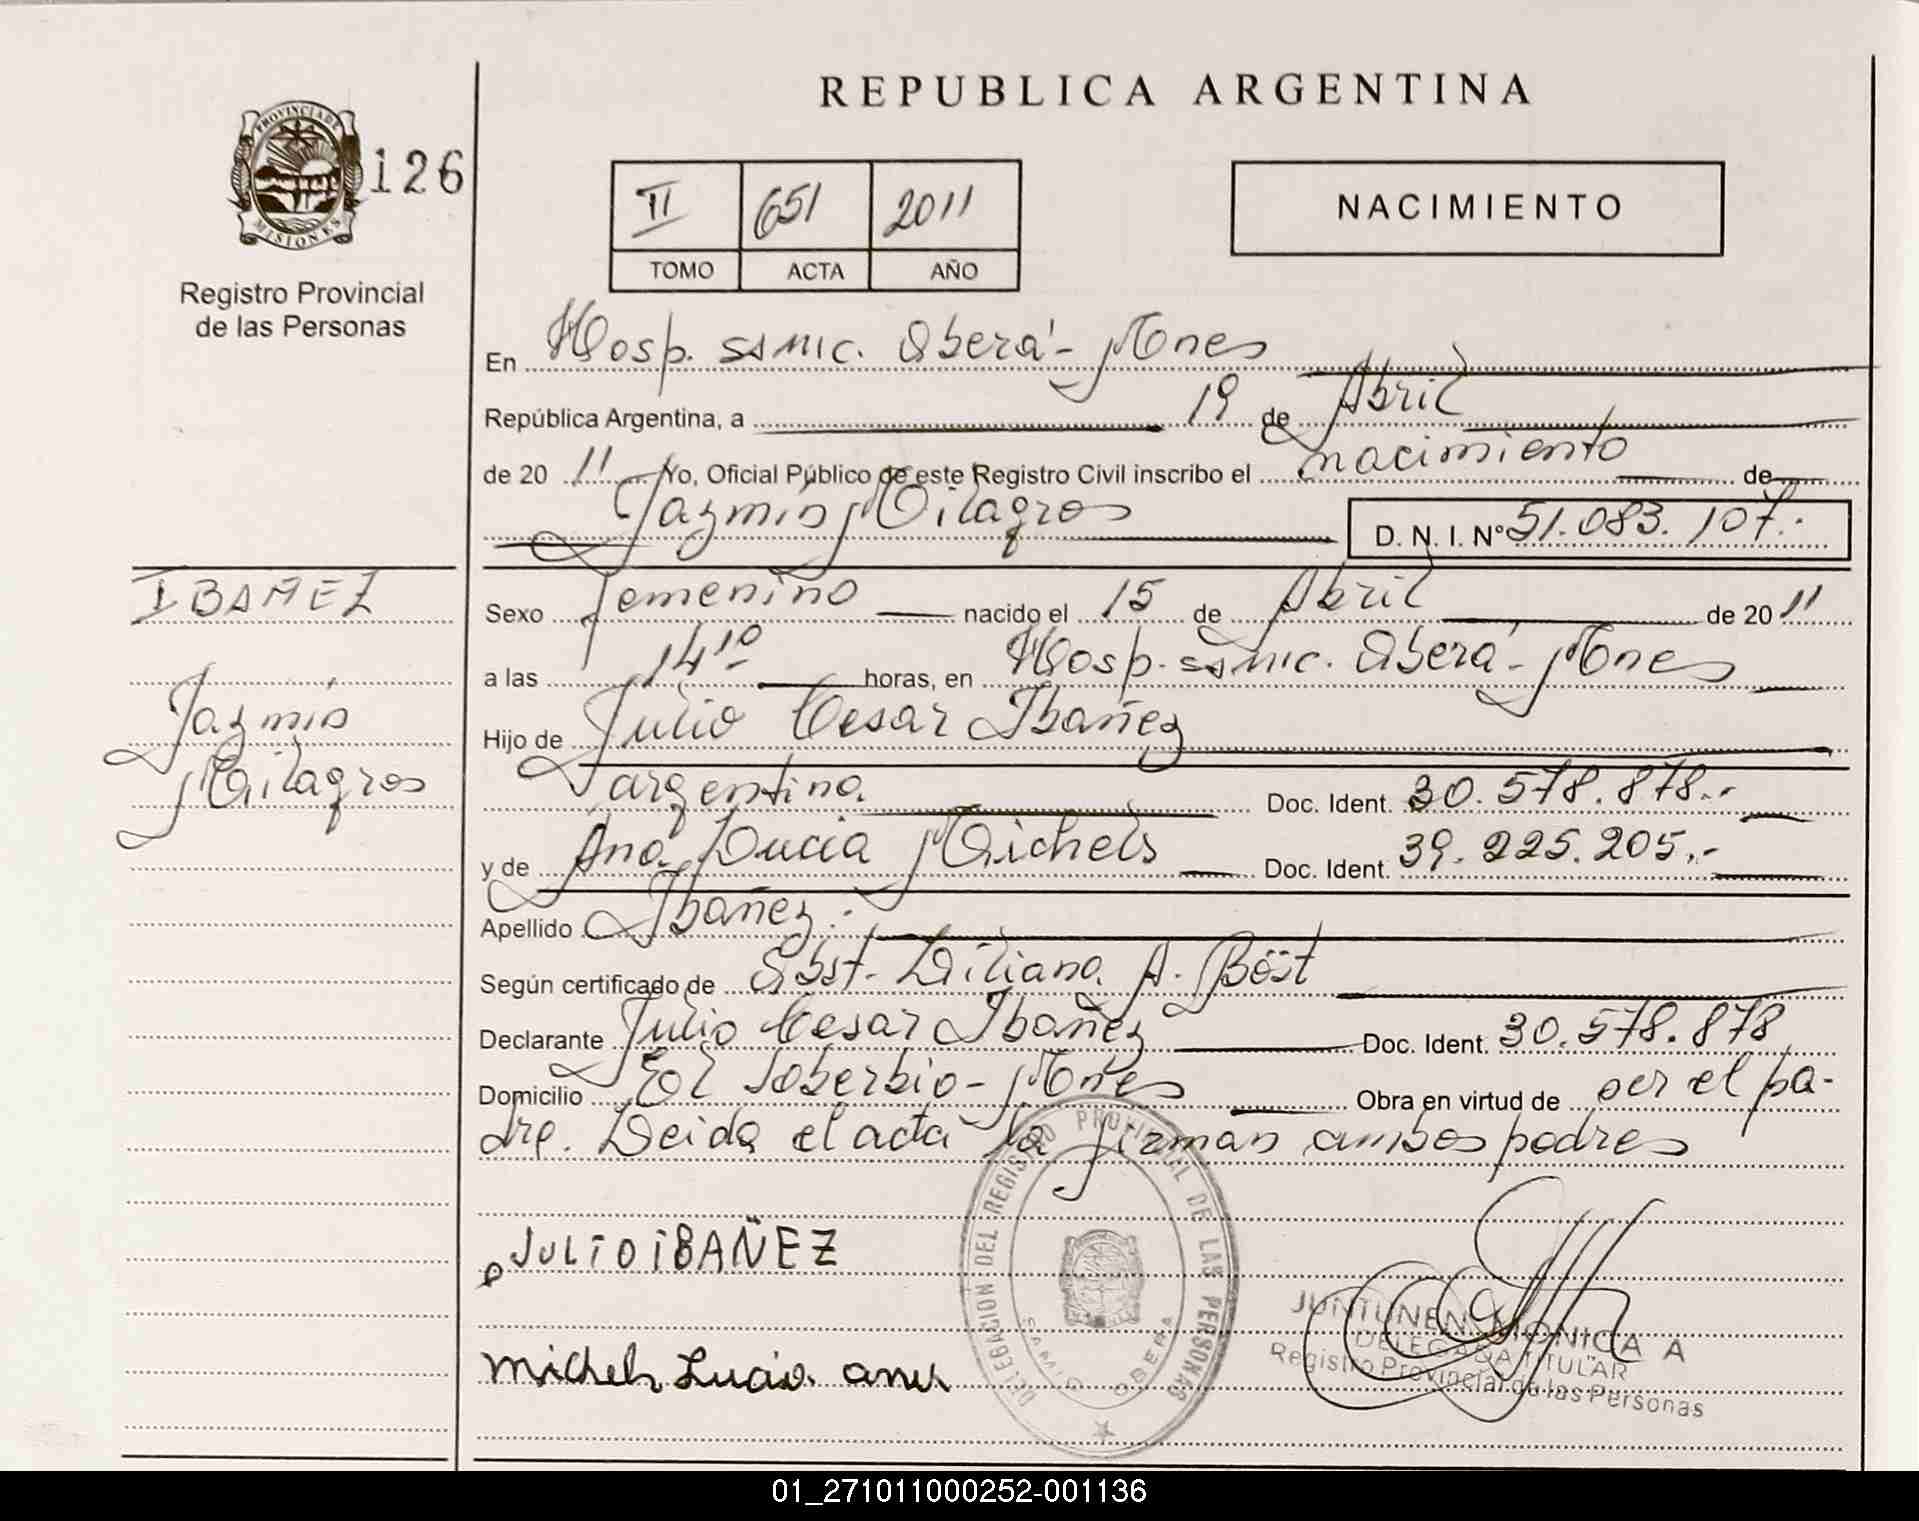 REPUBLICA ARGENTINA
PROVINCIA DE
MISIONES
126
Registro Provincial
de las Personas
II 651 2011
TOMO ACTA AÑO
NACIMIENTO
En Hosp. SAMIC. Oberá - Mnes
República Argentina, a 19 de Abril
de 20 11 Yo, Oficial Público de este Registro Civil inscribo el nacimiento de
Jazmín Milagros D. N. I. Nº 51.083.107.-
IBAÑEZ
Jazmín
Milagros
Sexo femenino nacido el 15 de Abril de 20 11
a las 14 10 horas, en Hosp. SAMIC. Oberá - Mnes
Hijo de Julio Cesar Ibañez
argentina Doc. Ident. 30.578.878.-
y de Ana Lucia Michels Doc. Ident. 39.225.205.-
Apellido Ibañez.
Según certificado de Obst. Liliana A. Böst
Declarante Julio Cesar Ibañez Doc. Ident. 30.578.878
Domicilio El Soberbio - Mnes Obra en virtud de ser el pa-
dre. Leida el acta la firman ambos padres
JULIO IBAÑEZ
Michels Lucia ana
DELEGACION DEL REGISTRO PROVINCIAL DE LAS PERSONAS
SAMIC OBERA
JUNTUNEN MONICA A
DELEGADA TITULAR
Registro Provincial de las Personas
01_271011000252-001136